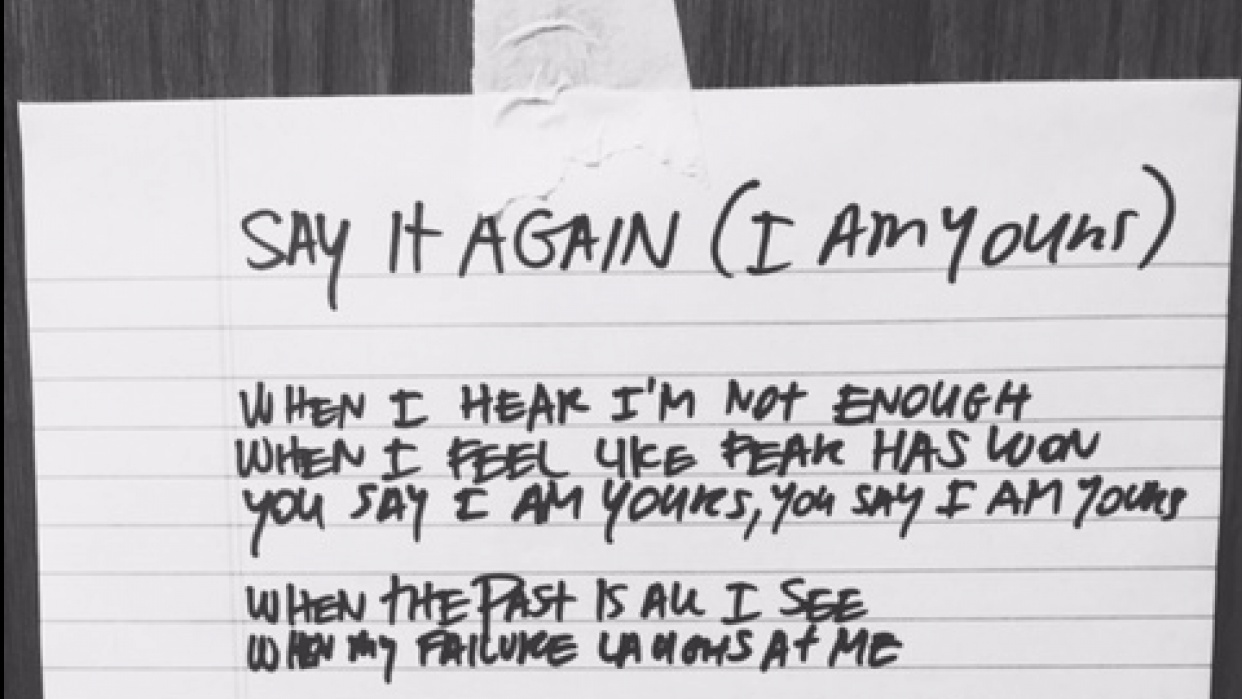 SAY It AGAIN (I AM YOURS)
WHEN I HEAR I'M Not ENOUGH
WHEN I FEEL LIKE FEAR HAS WON
YOU SAY I AM YOURS, YOU SAY I AM YOURS
WHEN tHE PAST IS ALL I SEE
WHEN MY FAILURE LAUGHS At ME